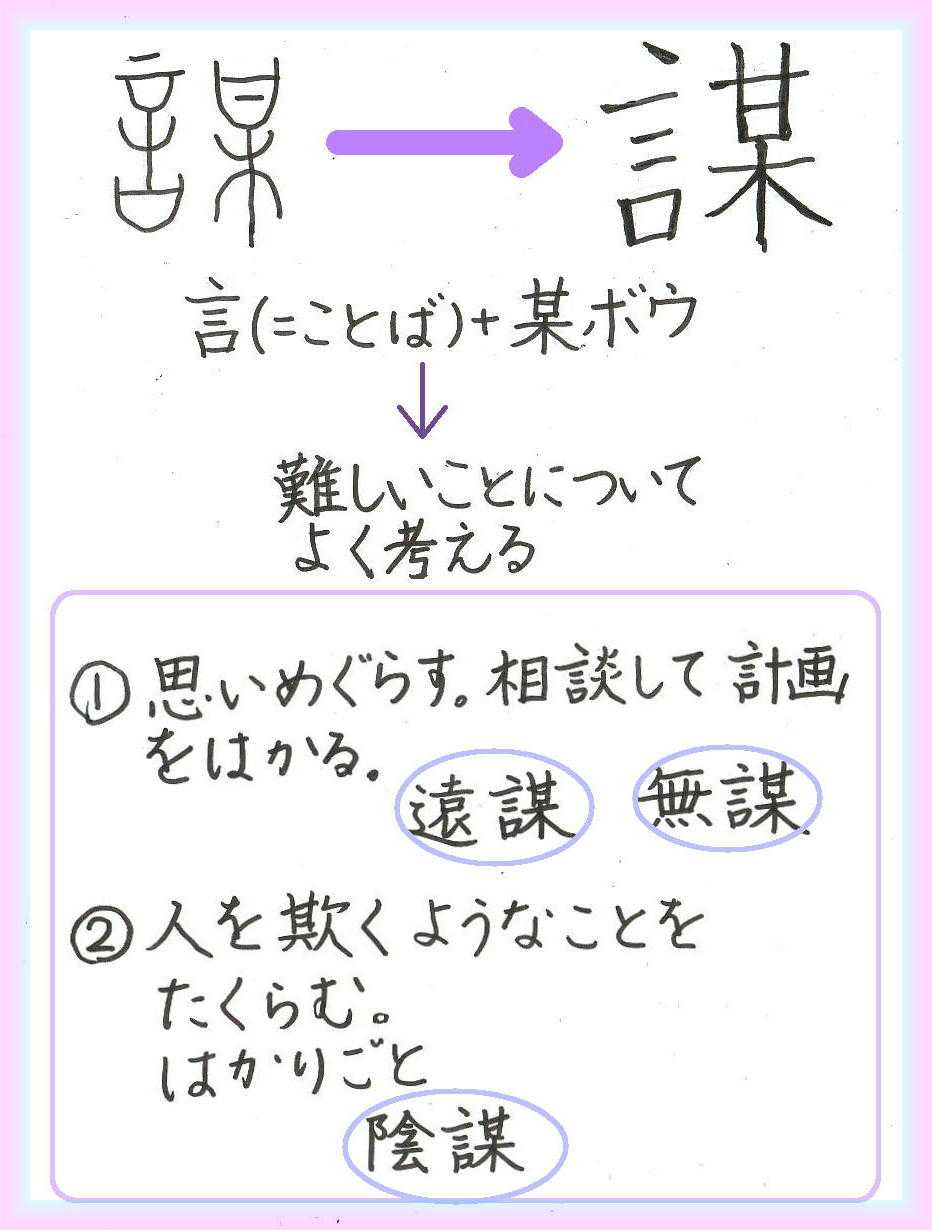 謀 謀
言(=ことば)+某ボウ
難しいことについて
よく考える
①思いめぐらす。相談して計画
をはかる。
遠謀 無謀
②人を欺くようなことを
たくらむ。
はかりごと
陰謀